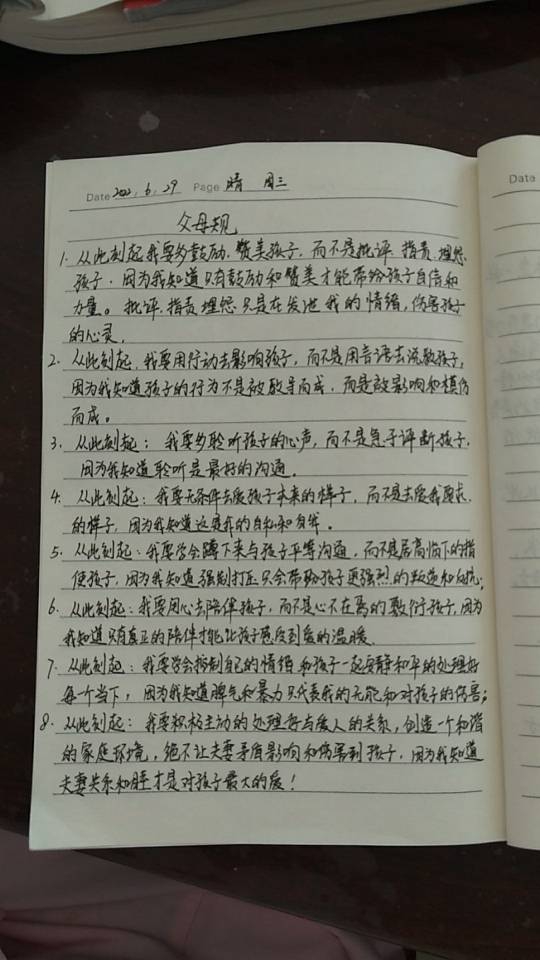 Date 2022.6.29 Page 晴 周三
Date
父母规
1. 从此刻起我要多鼓励、赞美孩子,而不是批评、指责、埋怨
孩子,因为我知道只有鼓励和赞美才能带给孩子自信和
力量。批评、指责埋怨只是在发泄我的情绪,伤害孩子
的心灵。
2. 从此刻起,我要用行动去影响孩子,而不是用言语去说教孩子,
因为我知道孩子的行为不是被教导而成,而是被影响和模仿
而成。
3. 从此刻起:我要多聆听孩子的心声,而不是急于评断孩子,
因为我知道聆听是最好的沟通。
4. 从此刻起:我要无条件去爱孩子本来的样子,而不是去爱我要求
的样子,因为我知道这是我的自私和自我。
5. 从此刻起:我要学会蹲下来与孩子平等沟通,而不是居高临下的指
使孩子,因为我知道强制打压只会带给孩子更强烈的叛逆和反抗;
6. 从此刻起:我要用心去陪伴孩子,而不是心不在焉的敷衍孩子,因为
我知道只有真正的陪伴才能让孩子感受到爱的温暖。
7. 从此刻起:我要学会控制自己的情绪和孩子一起安静和平的处理好
每一个当下,因为我知道脾气和暴力只代表我的无能和对孩子的伤害;
8. 从此刻起:我要积极主动的处理好与爱人的关系,创造一个和谐
的家庭环境,绝不让夫妻矛盾影响和伤害到孩子,因为我知道
夫妻关系和睦才是对孩子最大的爱!